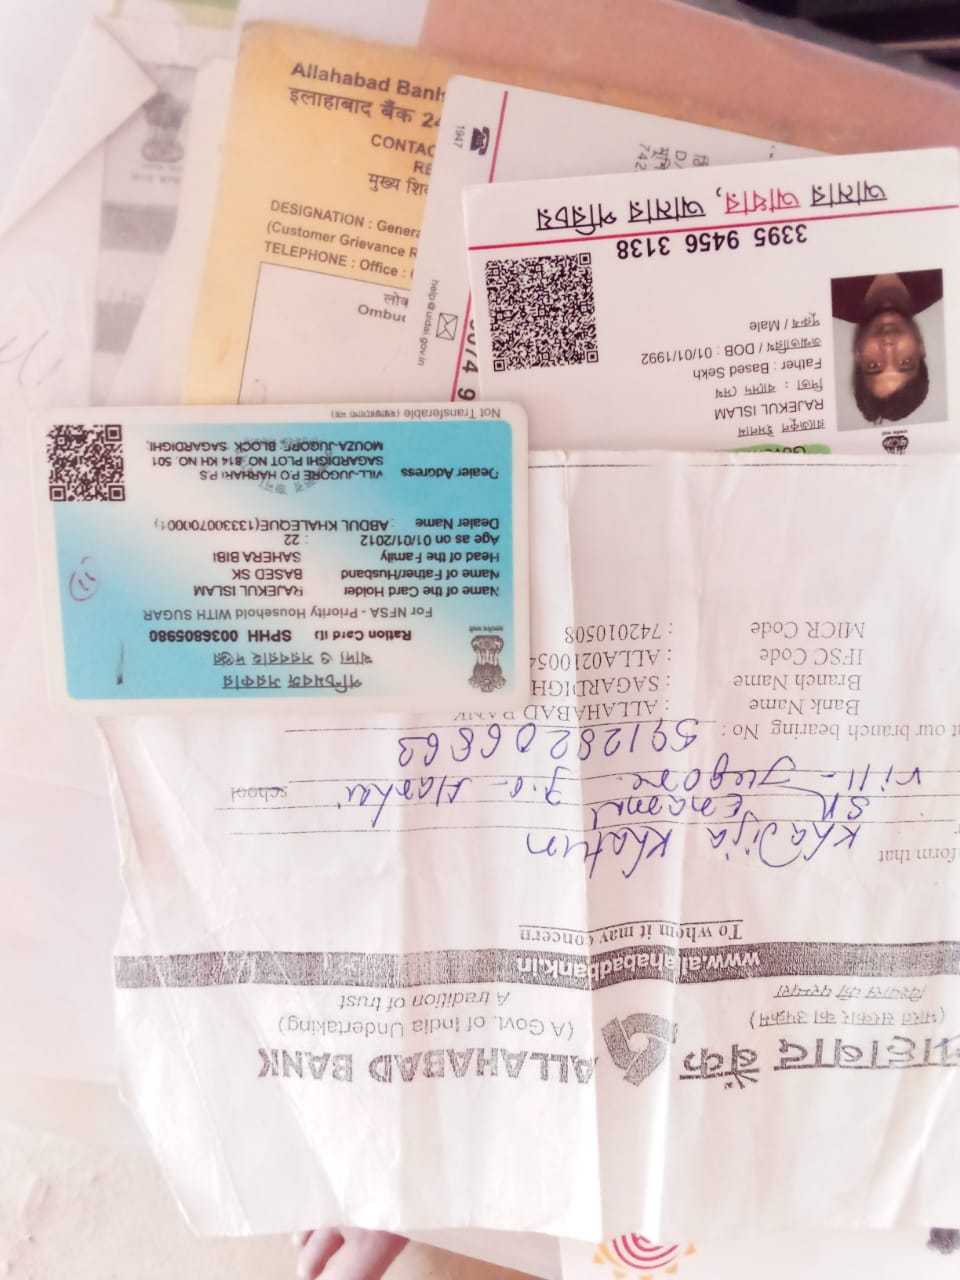 बैंक
ALLAHABAD BANK
(भारत सरकार का उपक्रम)
(A Govt. of India Undertaking)
विश्वास की परम्परा
A tradition of trust
www.allahabadbank.in
To whom it may concern
form that
Khadija Khatun
SK Enamul
vill- Jugore. P.O- Harhari school
t our branch bearing No : 59128206863
Bank Name : ALLAHABAD BANK
Branch Name : SAGARDIGH
IFSC Code : ALLA0210054
MICR Code : 742010508
পশ্চিমবঙ্গ সরকার
খাদ্য ও সরবরাহ দপ্তর
Ration Card ID SPHH 0036805980
For NFSA - Priority Household WITH SUGAR
Name of the Card Holder RAJEKUL ISLAM
Name of Father/Husband BASED SK
Head of the Family SAHERA BIBI
Age as on 01/01/2012 : 22
Dealer Name : ABDUL KHALEQUE(133300700001)
Dealer Address VILL-JUGORE P.O HARHARI P.S
SAGARDIGHI PLOT NO 814 KH NO. 501
MOUZA-JUGORE BLOCK SAGARDIGHI,
Not Transferable (হস্তান্তরযোগ্য নয়)
11
রাজেকুল ইসলাম
RAJEKUL ISLAM
পিতা : বাসেদ সেখ
Father : Based Sekh
জন্মতারিখ / DOB : 01/01/1992
পুরুষ / Male
3395 9456 3138
আমার আধার, আমার পরিচয়
help@uidai.gov.in
1947
Allahabad Bank
इलाहाबाद बैंक
CONTAC
मुख्य
DESIGNATION : Genera
(Customer Grievance R
TELEPHONE : Office :
Ombud